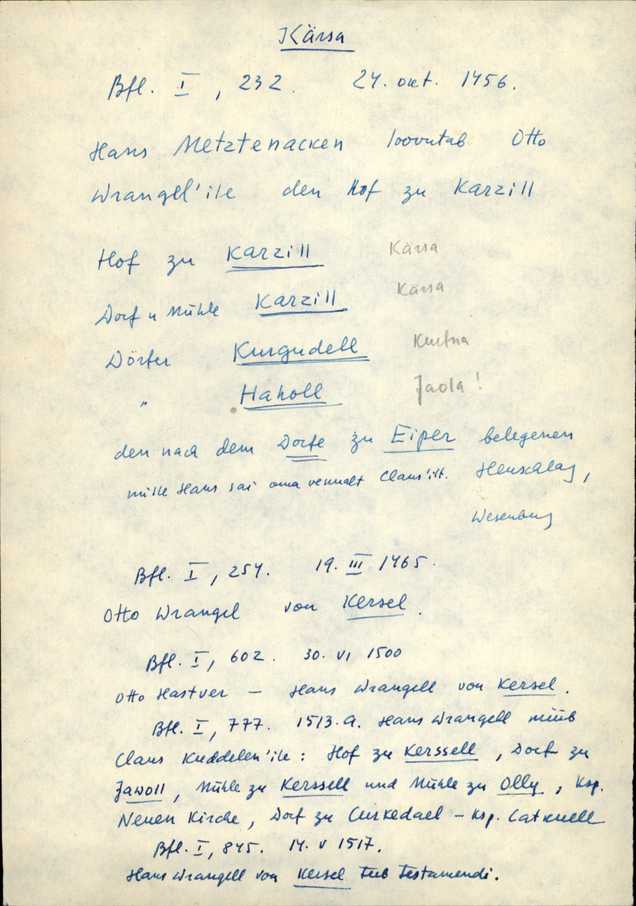 Kärsa
Bfl. I, 232. 24. okt. 1456.
Hans Metztenacken loovutab Otto
Wrangel'ile den Hof zu Karzill
Hof zu Karzill Kärsa
Dorf u Mühle Karzill Kärsa
Dörfer Kurgudell Kurtna
" Haholl Jaola!
den nach dem Dorfe zu Eiper belegenen
mille Hans sai oma vennalt Claus'ilt. Heuschlag,
Wesenberg
Bfl. I, 254. 19. III 1465.
Otto Wrangel von Kersel.
Bfl. I, 602. 30. VI 1500
Otto Hastver – Hans Wrangell von Kersel.
Bfl. I, 777. 1513. a. Hans Wrangell müüb
Claus Kuddelen'ile: Hof zu Kerssell, Dorf zu
Jawoll, Mühle zu Kerssell und Mühle zu Olly, Ksp.
Neuen Kirche, Dorf zu Curkedael – Ksp. Catkuell
Bfl. I, 845. 14. V 1517.
Hans Wrangell von Kersel teeb testamendi.